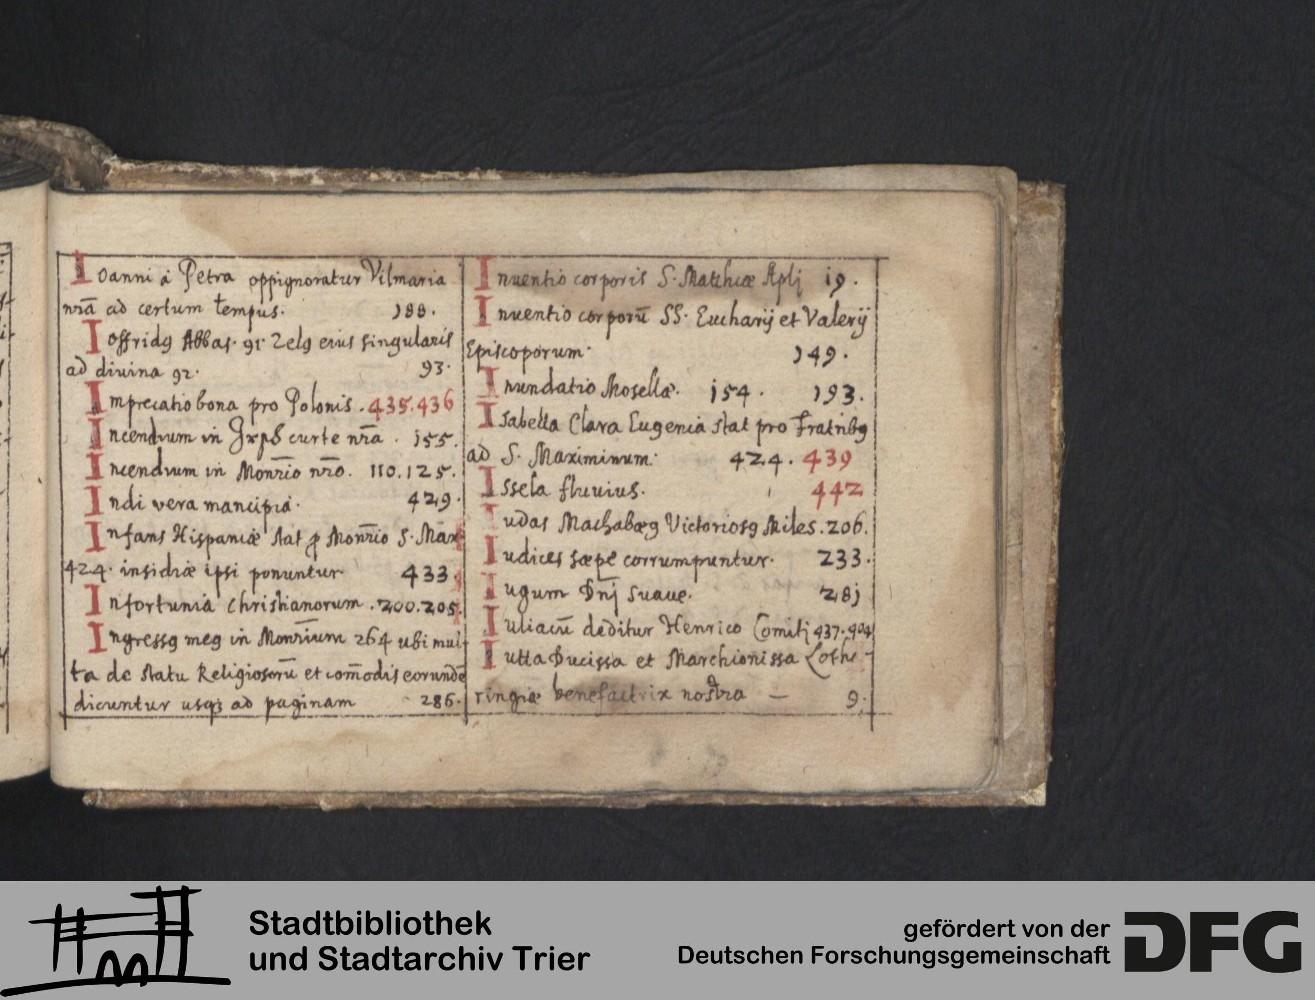 Ioanni à Petra oppignoratur Vilmaria
nr̃a ad certum tempus. 188.
Ioffridꝯ Abbas. 91. Zelꝯ eius singularis
ad divina 92. 93.
Imprecatio bona pro Polonis. 435. 436
Incendium in curte nr̃a. 155.
Incendium in Monr̃io nr̃o. 110. 125.
Indi vera mancipia. 429.
Infans Hispaniæ stat ꝓ Monr̃io S. Max
424. insidiæ ipsi ponuntur 433
Infortunia Christianorum. 200. 205.
Ingressꝯ meꝯ in Monr̃ium 264 ubi mul
ta de statu Religiosorũ et com̃odis eorundẽ
dicuntur usqꝫ ad paginam 286.
Inventio corporis S. Matthiæ Aplj 19.
Inventio corporũ SS. Eucharij et Valerij
Episcoporum. 149.
Inundatio Mosellæ. 154. 193.
Isabella Clara Eugenia stat pro Fratribꝯ
ad S. Maximinum. 424. 439
Issela fluvius. 442
Iudas Machabæꝯ Victoriosꝯ Miles. 206.
Iudices sæpe corrumpuntur. 233.
Iugum Dnj̃ suave. 281
Iuliacũ deditur Henrico Comitj 437. 404
Iutta Ducissa et Marchionissa Loth-
ringiæ benefactrix nostra — 9.
Stadtbibliothek
und Stadtarchiv Trier
gefördert von der
Deutschen Forschungsgemeinschaft
DFG